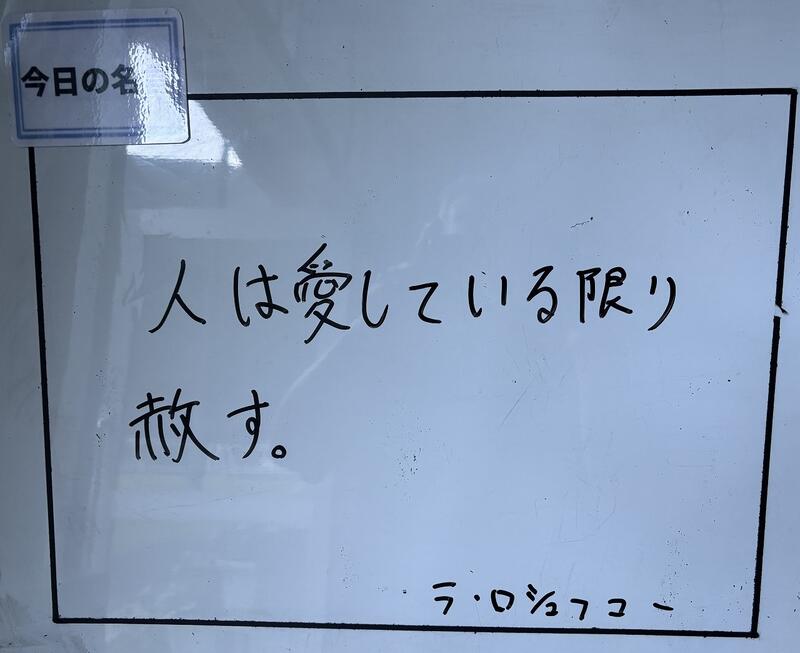 今日の名
人は愛している限り
赦す。
ラ・ロシュフコー